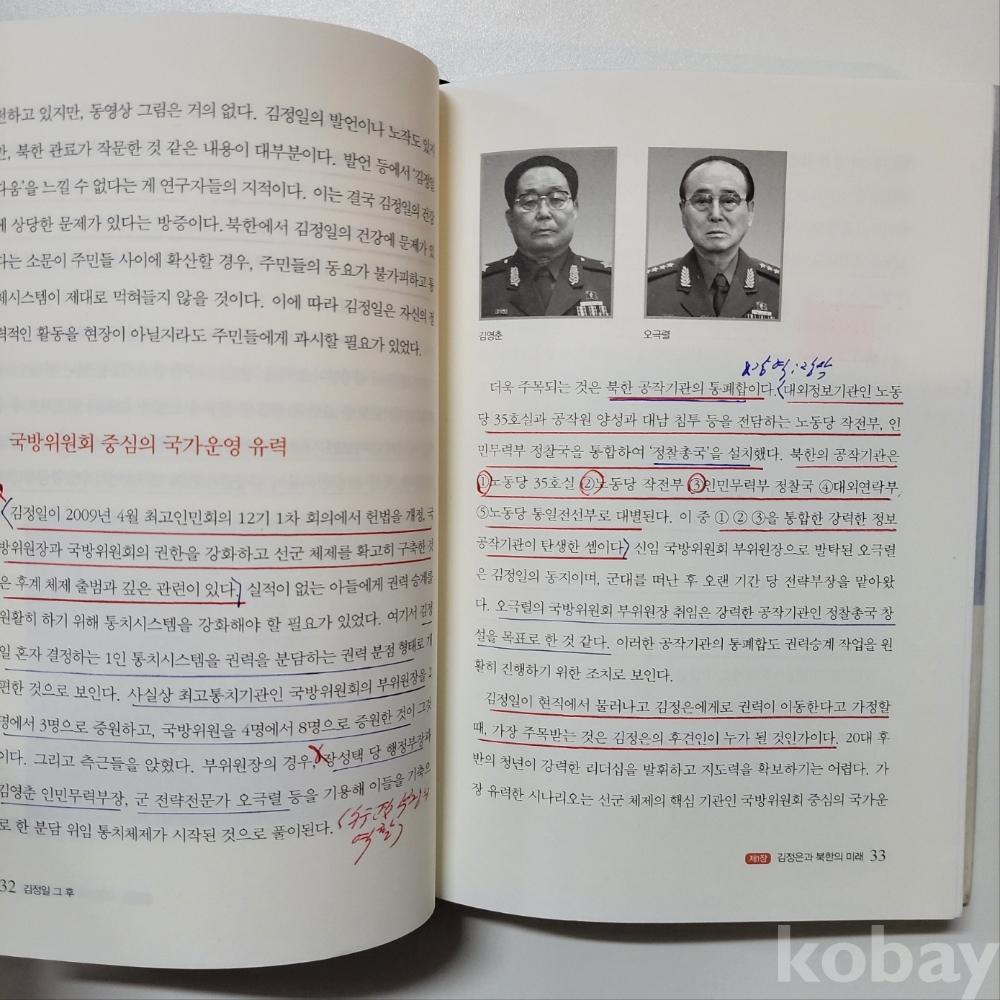 전하고 있지만, 동영상 그림은 거의 없다. 김정일의 발언이나 노작도 있지
만, 북한 관료가 작문한 것 같은 내용이 대부분이다. 발언 등에서 '김정일
다움'을 느낄 수 없다는 게 연구자들의 지적이다. 이는 결국 김정일의 건강
에 상당한 문제가 있다는 방증이다. 북한에서 김정일의 건강에 문제가 있
다는 소문이 주민들 사이에 확산할 경우, 주민들의 동요가 불가피하고 통
제시스템이 제대로 먹혀들지 않을 것이다. 이에 따라 김정일은 자신의 정
력적인 활동을 현장이 아닐지라도 주민들에게 과시할 필요가 있었다.
국방위원회 중심의 국가운영 유력
김정일이 2009년 4월 최고인민회의 12기 1차 회의에서 헌법을 개정, 국
방위원장과 국방위원회의 권한을 강화하고 선군 체제를 확고히 구축한 것
은 후계 체제 출범과 깊은 관련이 있다. 실적이 없는 아들에게 권력 승계를
원활히 하기 위해 통치시스템을 강화해야 할 필요가 있었다. 여기서 김정
일 혼자 결정하는 1인 통치시스템을 권력을 분담하는 권력 분점 형태로 개
편한 것으로 보인다. 사실상 최고통치기관인 국방위원회의 부위원장을 2
명에서 3명으로 증원하고, 국방위원을 4명에서 8명으로 증원한 것이 그것
이다. 그리고 측근들을 앉혔다. 부위원장의 경우, 장성택 당 행정부장과
김영춘 인민무력부장, 군 전략전문가 오극렬 등을 기용해 이들을 기축으
로 한 분담 위임 통치체제가 시작된 것으로 풀이된다.
역할
32 김정일 그 후
김영춘
오극렬
더욱 주목되는 것은 북한 공작기관의 통폐합이다. 대외정보기관인 노동
당 35호실과 공작원 양성과 대남 침투 등을 전담하는 노동당 작전부, 인
민무력부 정찰국을 통합하여 '정찰총국'을 설치했다. 북한의 공작기관은
①노동당 35호실 ②노동당 작전부 ③인민무력부 정찰국 ④대외연락부
⑤노동당 통일전선부로 대별된다. 이 중 ①②③을 통합한 강력한 정보
공작기관이 탄생한 셈이다. 신임 국방위원회 부위원장으로 발탁된 오극렬
은 김정일의 동지이며, 군대를 떠난 후 오랜 기간 당 전략부장을 맡아왔
다. 오극렬의 국방위원회 부위원장 취임은 강력한 공작기관인 정찰총국 창
설을 목표로 한 것 같다. 이러한 공작기관의 통폐합도 권력승계 작업을 원
활히 진행하기 위한 조치로 보인다.
김정일이 현직에서 물러나고 김정은에게로 권력이 이동한다고 가정할
때, 가장 주목받는 것은 김정은의 후견인이 누가 될 것인가이다. 20대 후
반의 청년이 강력한 리더십을 발휘하고 지도력을 확보하기는 어렵다. 가
장 유력한 시나리오는 선군 체제의 핵심 기관인 국방위원회 중심의 국가운
제1장 김정은과 북한의 미래 33
kobay